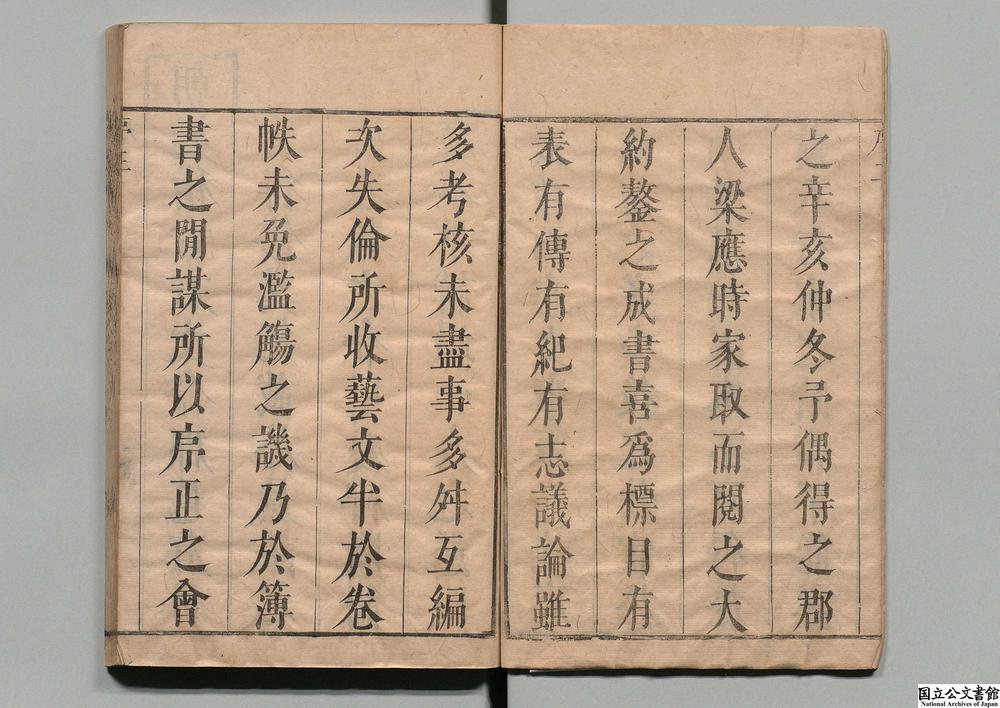 之辛亥仲冬予偶得之郡
人梁應時家取而閱之大
約鏊之成書喜爲標目有
表有傳有紀有志議論雖
多考核未盡事多舛互編
次失倫所收藝文半於卷
帙未免濫觴之譏乃於簿
書之閒謀所以序正之會
国立公文書館
National Archives of Japan